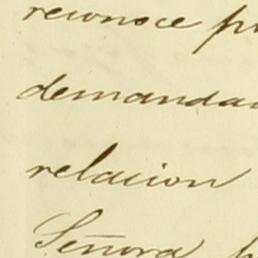 reconoce
demanda
relacion
Señora